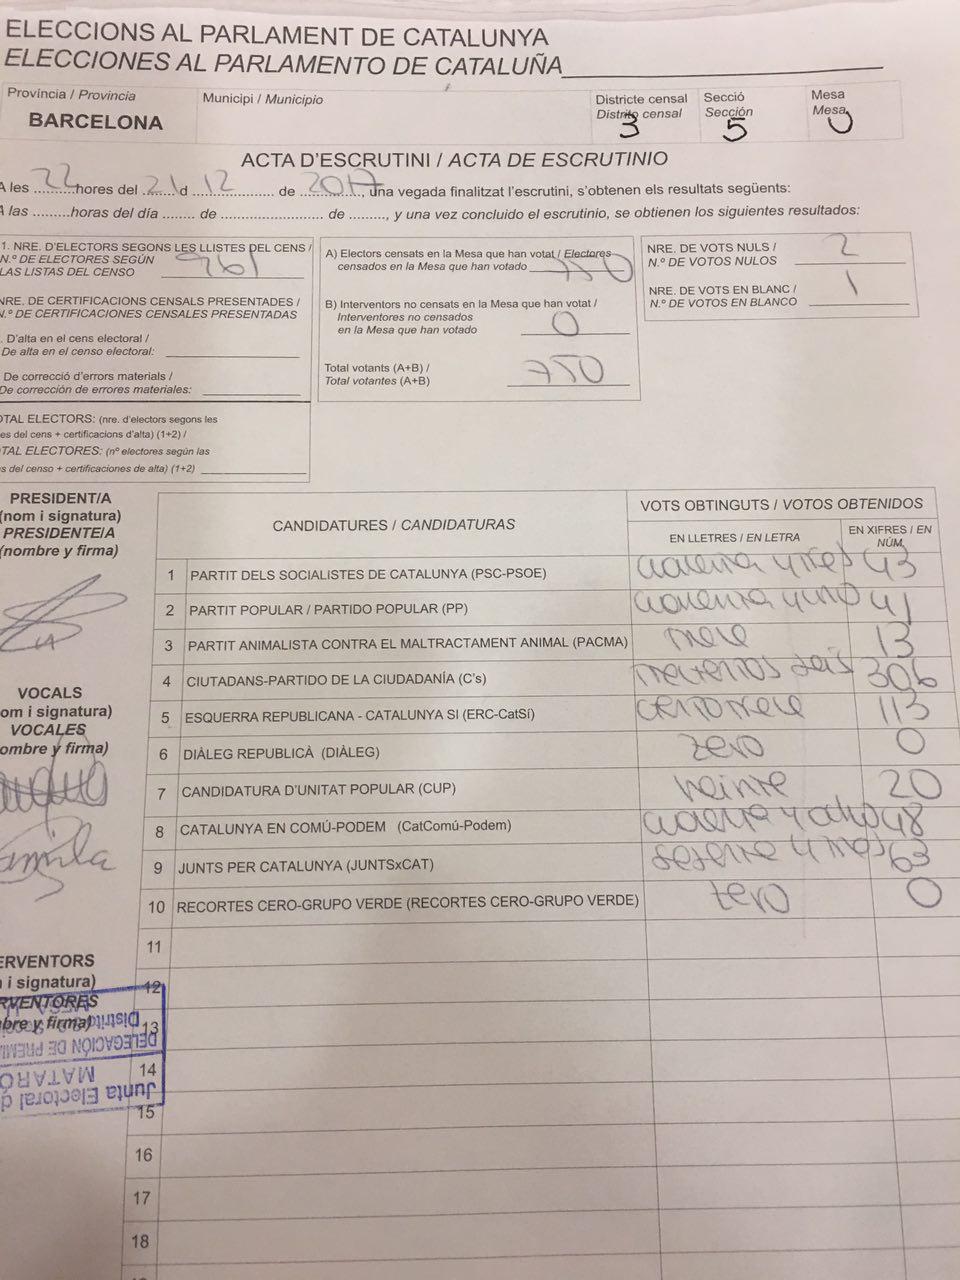 ELECCIONS AL PARLAMENT DE CATALUNYA
ELECCIONES AL PARLAMENTO DE CATALUÑA
Província / Provincia
BARCELONA
Municipi / Municipio
Districte censal
Distrito censal
3
Secció
Sección
5
Mesa
Mesa
U
ACTA D'ESCRUTINI / ACTA DE ESCRUTINIO
A les 22 hores del 21 d 12 de 2017, una vegada finalitzat l'escrutini, s'obtenen els resultats següents:
A las .........horas del día ........ de ........................ de ........., y una vez concluido el escrutinio, se obtienen los siguientes resultados:
1. NRE. D'ELECTORS SEGONS LES LLISTES DEL CENS /
N.º DE ELECTORES SEGÚN
LAS LISTAS DEL CENSO 961
NRE. DE CERTIFICACIONS CENSALS PRESENTADES /
N.º DE CERTIFICACIONES CENSALES PRESENTADAS
. D'alta en el cens electoral /
De alta en el censo electoral:
De correcció d'errors materials /
De corrección de errores materiales:
OTAL ELECTORS: (nre. d'electors segons les
es del cens + certificacions d'alta) (1+2) /
TAL ELECTORES: (nº electores según las
s del censo + certificaciones de alta) (1+2)
A) Electors censats en la Mesa que han votat / Electores
censados en la Mesa que han votado 750
B) Interventors no censats en la Mesa que han votat /
Interventores no censados
en la Mesa que han votado 0
Total votants (A+B) /
Total votantes (A+B) 750
NRE. DE VOTS NULS /
N.º DE VOTOS NULOS 2
NRE. DE VOTS EN BLANC /
N.º DE VOTOS EN BLANCO 1
PRESIDENT/A
(nom i signatura)
PRESIDENTE/A
(nombre y firma)
VOCALS
om i signatura)
VOCALES
ombre y firma)
ERVENTORS
i signatura)
RVENTORES
bre y firma)
CANDIDATURES / CANDIDATURAS
VOTS OBTINGUTS / VOTOS OBTENIDOS
EN LLETRES / EN LETRA
EN XIFRES / EN
NÚM.
1 PARTIT DELS SOCIALISTES DE CATALUNYA (PSC-PSOE) cuarenta y tres 43
2 PARTIT POPULAR / PARTIDO POPULAR (PP) cuarenta y uno 41
3 PARTIT ANIMALISTA CONTRA EL MALTRACTAMENT ANIMAL (PACMA) trece 13
4 CIUTADANS-PARTIDO DE LA CIUDADANÍA (C's) trecientos seis 306
5 ESQUERRA REPUBLICANA - CATALUNYA SI (ERC-CatSí) 113
6 DIÀLEG REPUBLICÀ (DIÀLEG) zero 0
7 CANDIDATURA D'UNITAT POPULAR (CUP) veinte 20
8 CATALUNYA EN COMÚ-PODEM (CatComú-Podem) y ocho 48
9 JUNTS PER CATALUNYA (JUNTSxCAT) y tres 63
10 RECORTES CERO-GRUPO VERDE (RECORTES CERO-GRUPO VERDE) zero 0
11
12
13
14
15
16
17
18
Junta Electoral d
MATARÓ
DELEGACIÓN DE PREMI